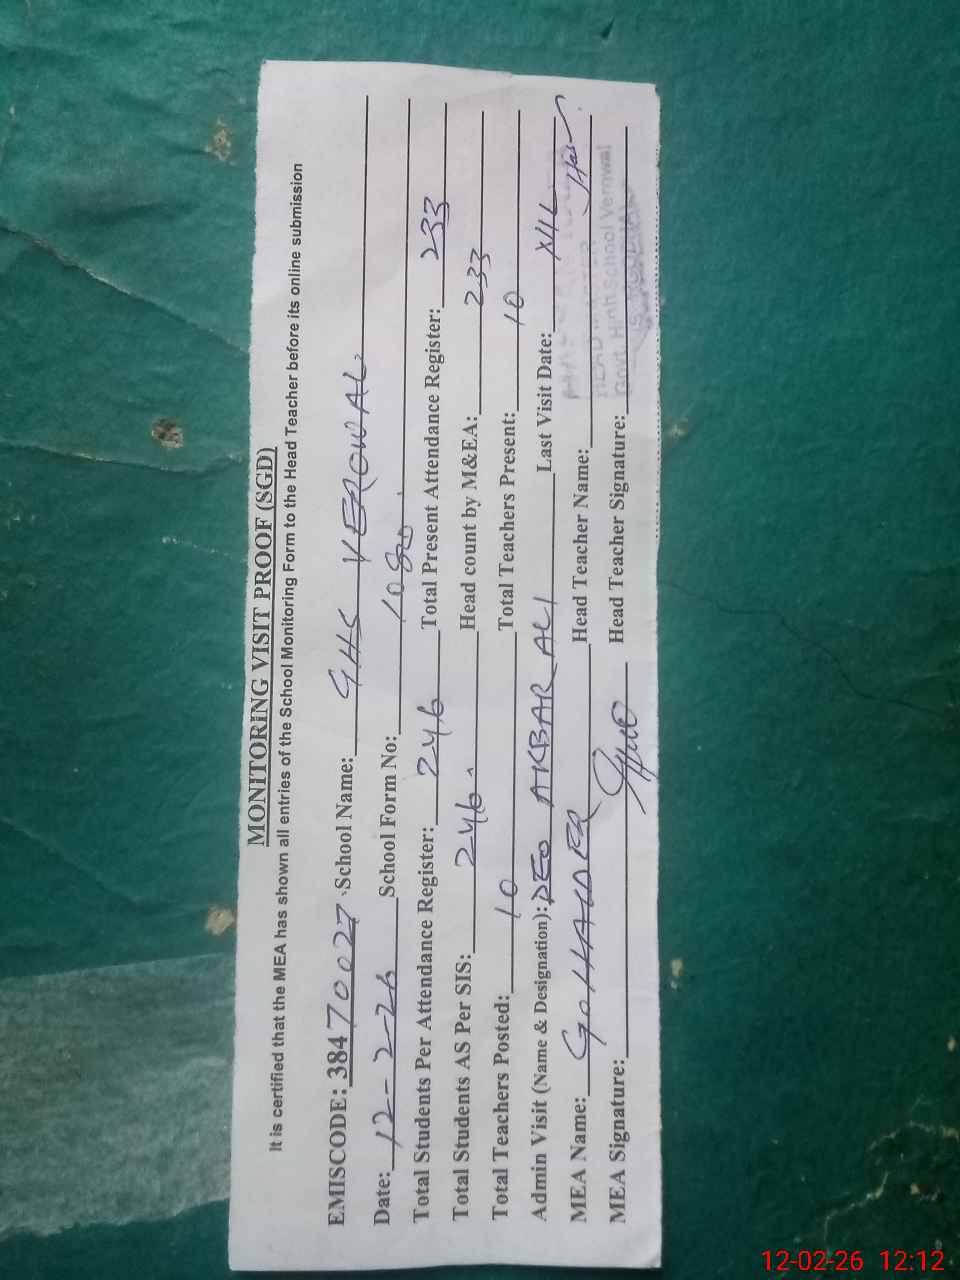 MONITORING VISIT PROOF (SGD)
It is certified that the MEA has shown all entries of the School Monitoring Form to the Head Teacher before its online submission
EMISCODE: 38470027 School Name: GHS VEROWAL
Date: 12-2-26 School Form No:
Total Students Per Attendance Register: 246 Total Present Attendance Register: 233
Total Students AS Per SIS: 246 Head count by M&EA: 233
Total Teachers Posted: 10 Total Teachers Present: 10
Admin Visit (Name & Designation): DEO AKBAR ALI Last Visit Date: NIL
MEA Name: G HAIDER Head Teacher Name:
HEAD MASTER
MEA Signature: Head Teacher Signature:
Govt. High School Verowal
12-02-26 12:12